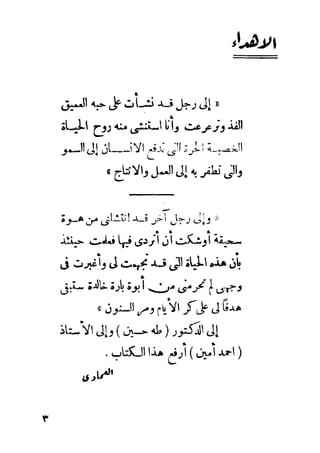 الاهداء
« إلى رجل قد نشأت على حبه العميق
الفذ وترعرعت وأنا استنشى منه روح الحياة
الخصبة الحرة التى تدفع الانسان إلى السمو
والتى تظفر به إلى العمل والانتاج »
« وإلى رجل آخر قد انتشانى من هوة
سحيقة أوشكت أن أتردى فيها فعلمت حينئذ
بأن هذه الحياة التى قد تجهمت لى وأغبرت فى
وجهى لم تحرمنى من أبوة بارة خالدة ستبقى
هدفاً لى على كر الأيام ومر السنون »
إلى الدكتور ( طه حسين ) وإلى الأستاذ
( احمد أمين ) أرفع هذا الكتاب .
العمارى
٣